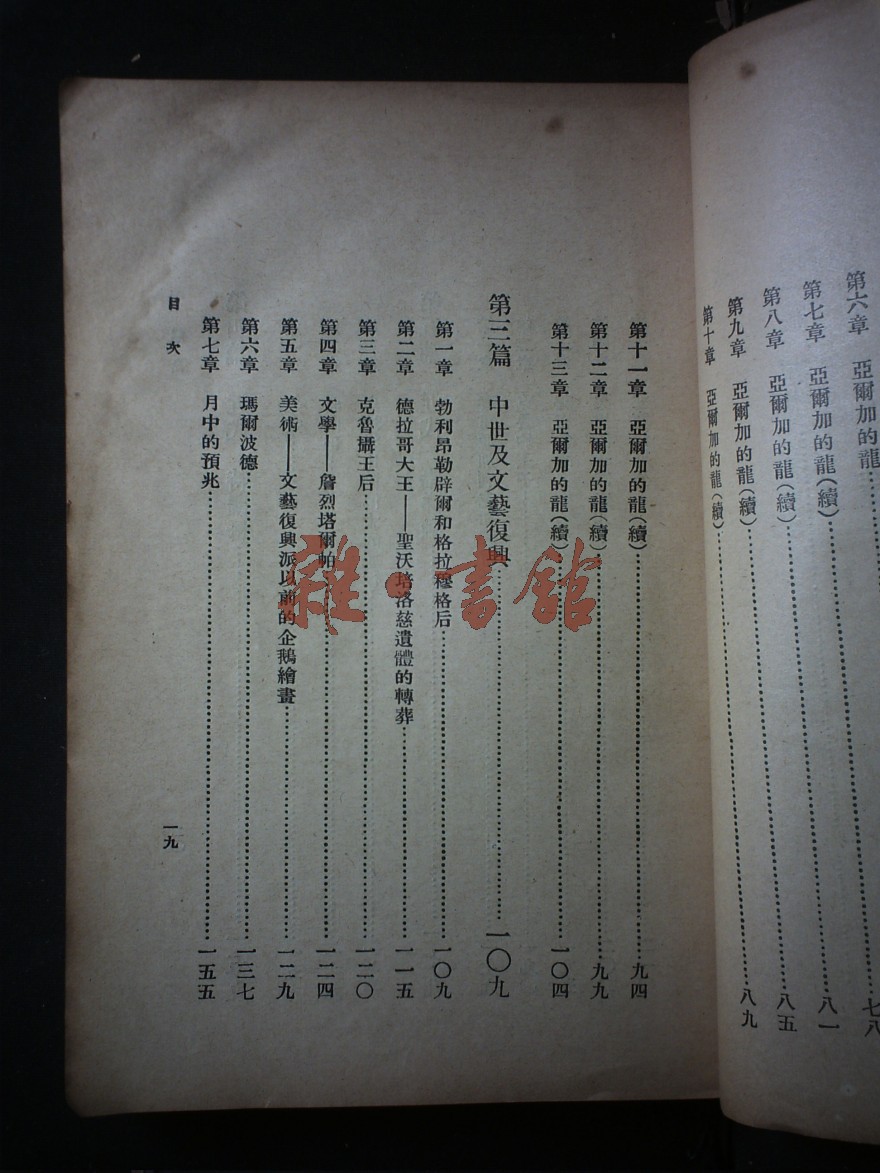 第六章　亞爾加的龍………七八
第七章　亞爾加的龍(續)………八一
第八章　亞爾加的龍(續)………八五
第九章　亞爾加的龍(續)………八九
第十章　亞爾加的龍(續)………
第十一章　亞爾加的龍(續)………九四
第十二章　亞爾加的龍(續)………九九
第十三章　亞爾加的龍(續)………一〇四
第三篇　中世及文藝復興………一〇九
第一章　勃利昂勒辟爾和格拉穆格后………一〇九
第二章　德拉哥大王——聖沃培洛慈遺體的轉葬………一一五
第三章　克魯攝王后………一二〇
第四章　文學——詹烈塔爾帕………一二四
第五章　美術——文藝復興派以前的企鵝繪畫………一二九
第六章　瑪爾波德………一三七
第七章　月中的預兆………一五五
目次
一九
雜·書館